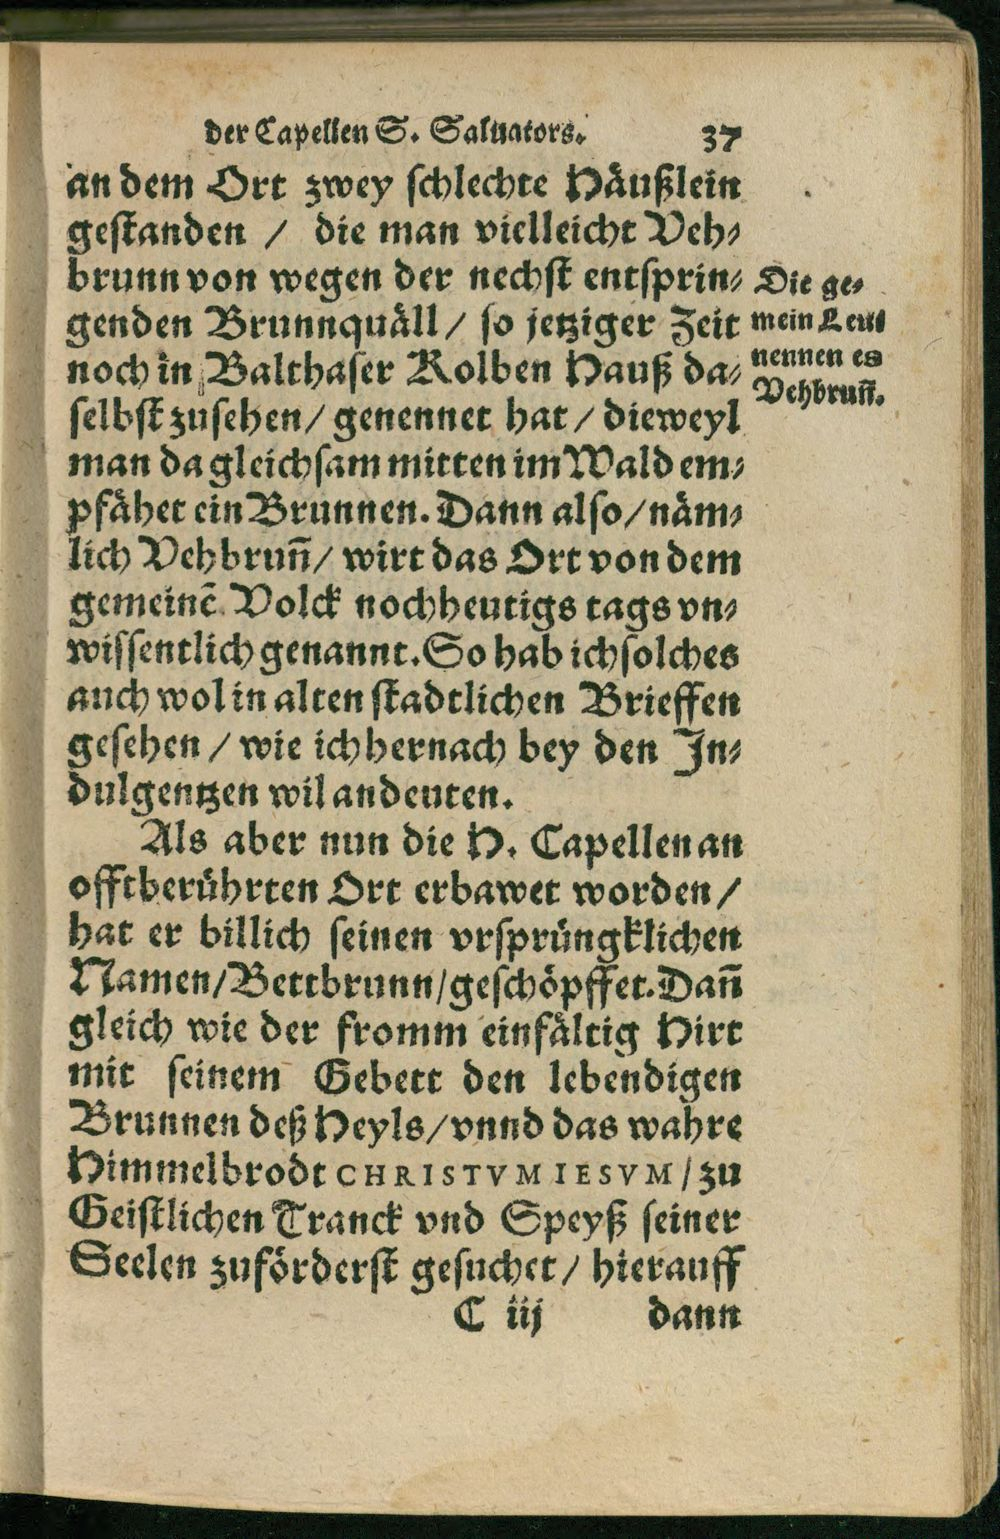 der Capellen S. Saluators. 37
an dem Ort zwey schlechte Häußlein
gestanden / die man vielleicht Veh⸗
brunn von wegen der nechst entsprin⸗
genden Brunnquäll / so jetziger Zeit
noch in Balthaser Kolben Hauß da⸗
selbst zusehen / genennet hat / dieweyl
man da gleichsam mitten im Wald em⸗
pfähet ein Brunnen. Dann also / näm⸗
lich Vehbrun̄ / wirt das Ort von dem
gemeinē Volck noch heutigs tags vn⸗
wissentlich genannt. So hab ich solches
auch wol in alten stadtlichen Brieffen
gesehen / wie ich hernach bey den In⸗
dulgentzen wil andeuten.
Als aber nun die H. Capellen an
offtberührten Ort erbawet worden /
hat er billich seinen vrsprüngklichen
Namen / Bettbrunn / geschöpffet. Dan̄
gleich wie der fromm einfältig Hirt
mit seinem Gebett den lebendigen
Brunnen deß Heyls / vnnd das wahre
Himmelbrodt CHRISTVM IESVM / zu
Geistlichen Tranck vnd Speyß seiner
Seelen zuförderst gesuchet / hierauff
C iij dann
Die ge⸗
mein Leut
nennen es
Vehbrun̄.